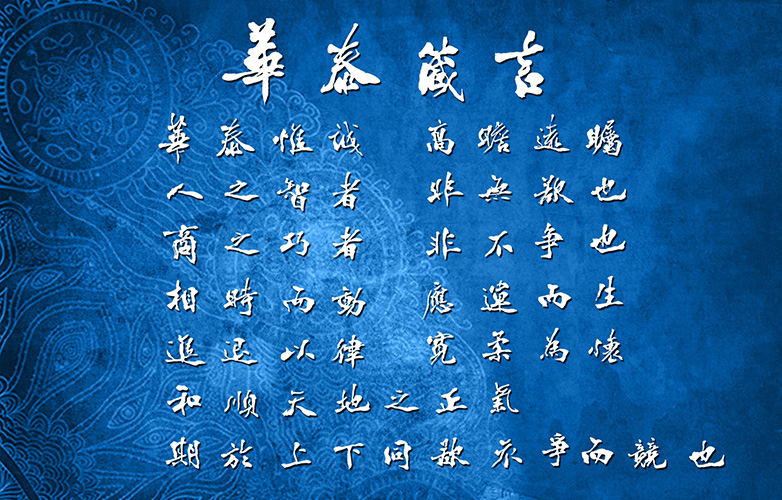 華泰箴言
華泰惟誠 高瞻遠矚
人之智者 非無欲也
商之巧者 非不爭也
相時而動 應運而生
進退以律 寬柔為懷
和順天地之正氣
期於上下同欲不爭而競也